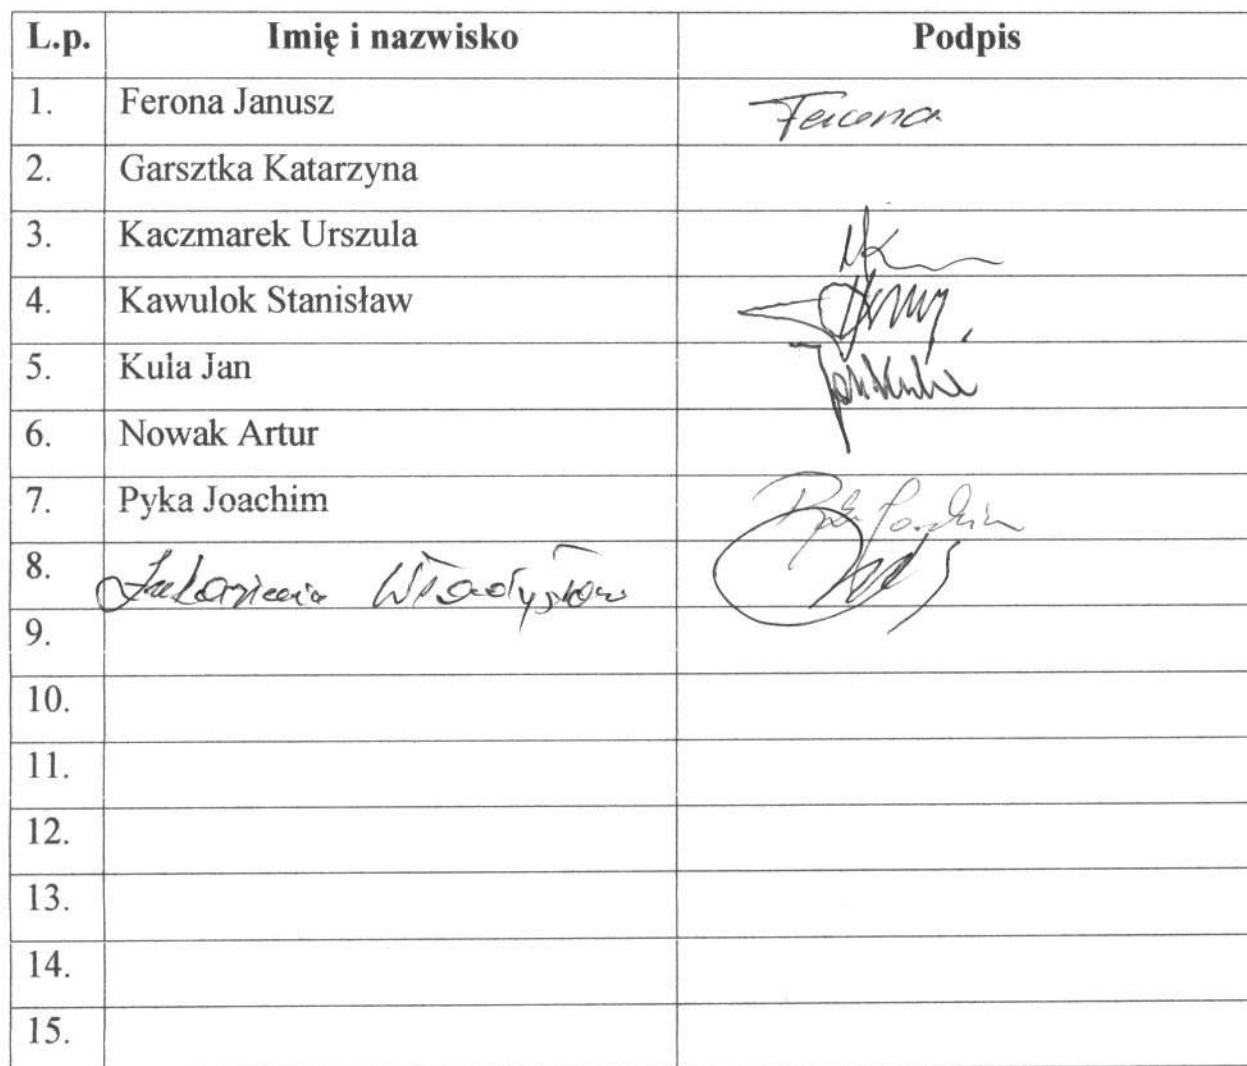 L.p. Imię i nazwisko Podpis
1. Ferona Janusz Ferona
2. Garsztka Katarzyna
3. Kaczmarek Urszula
4. Kawulok Stanisław
5. Kula Jan Jan Kula
6. Nowak Artur
7. Pyka Joachim Pyka Joachim
8. Władysław
9.
10.
11.
12.
13.
14.
15.